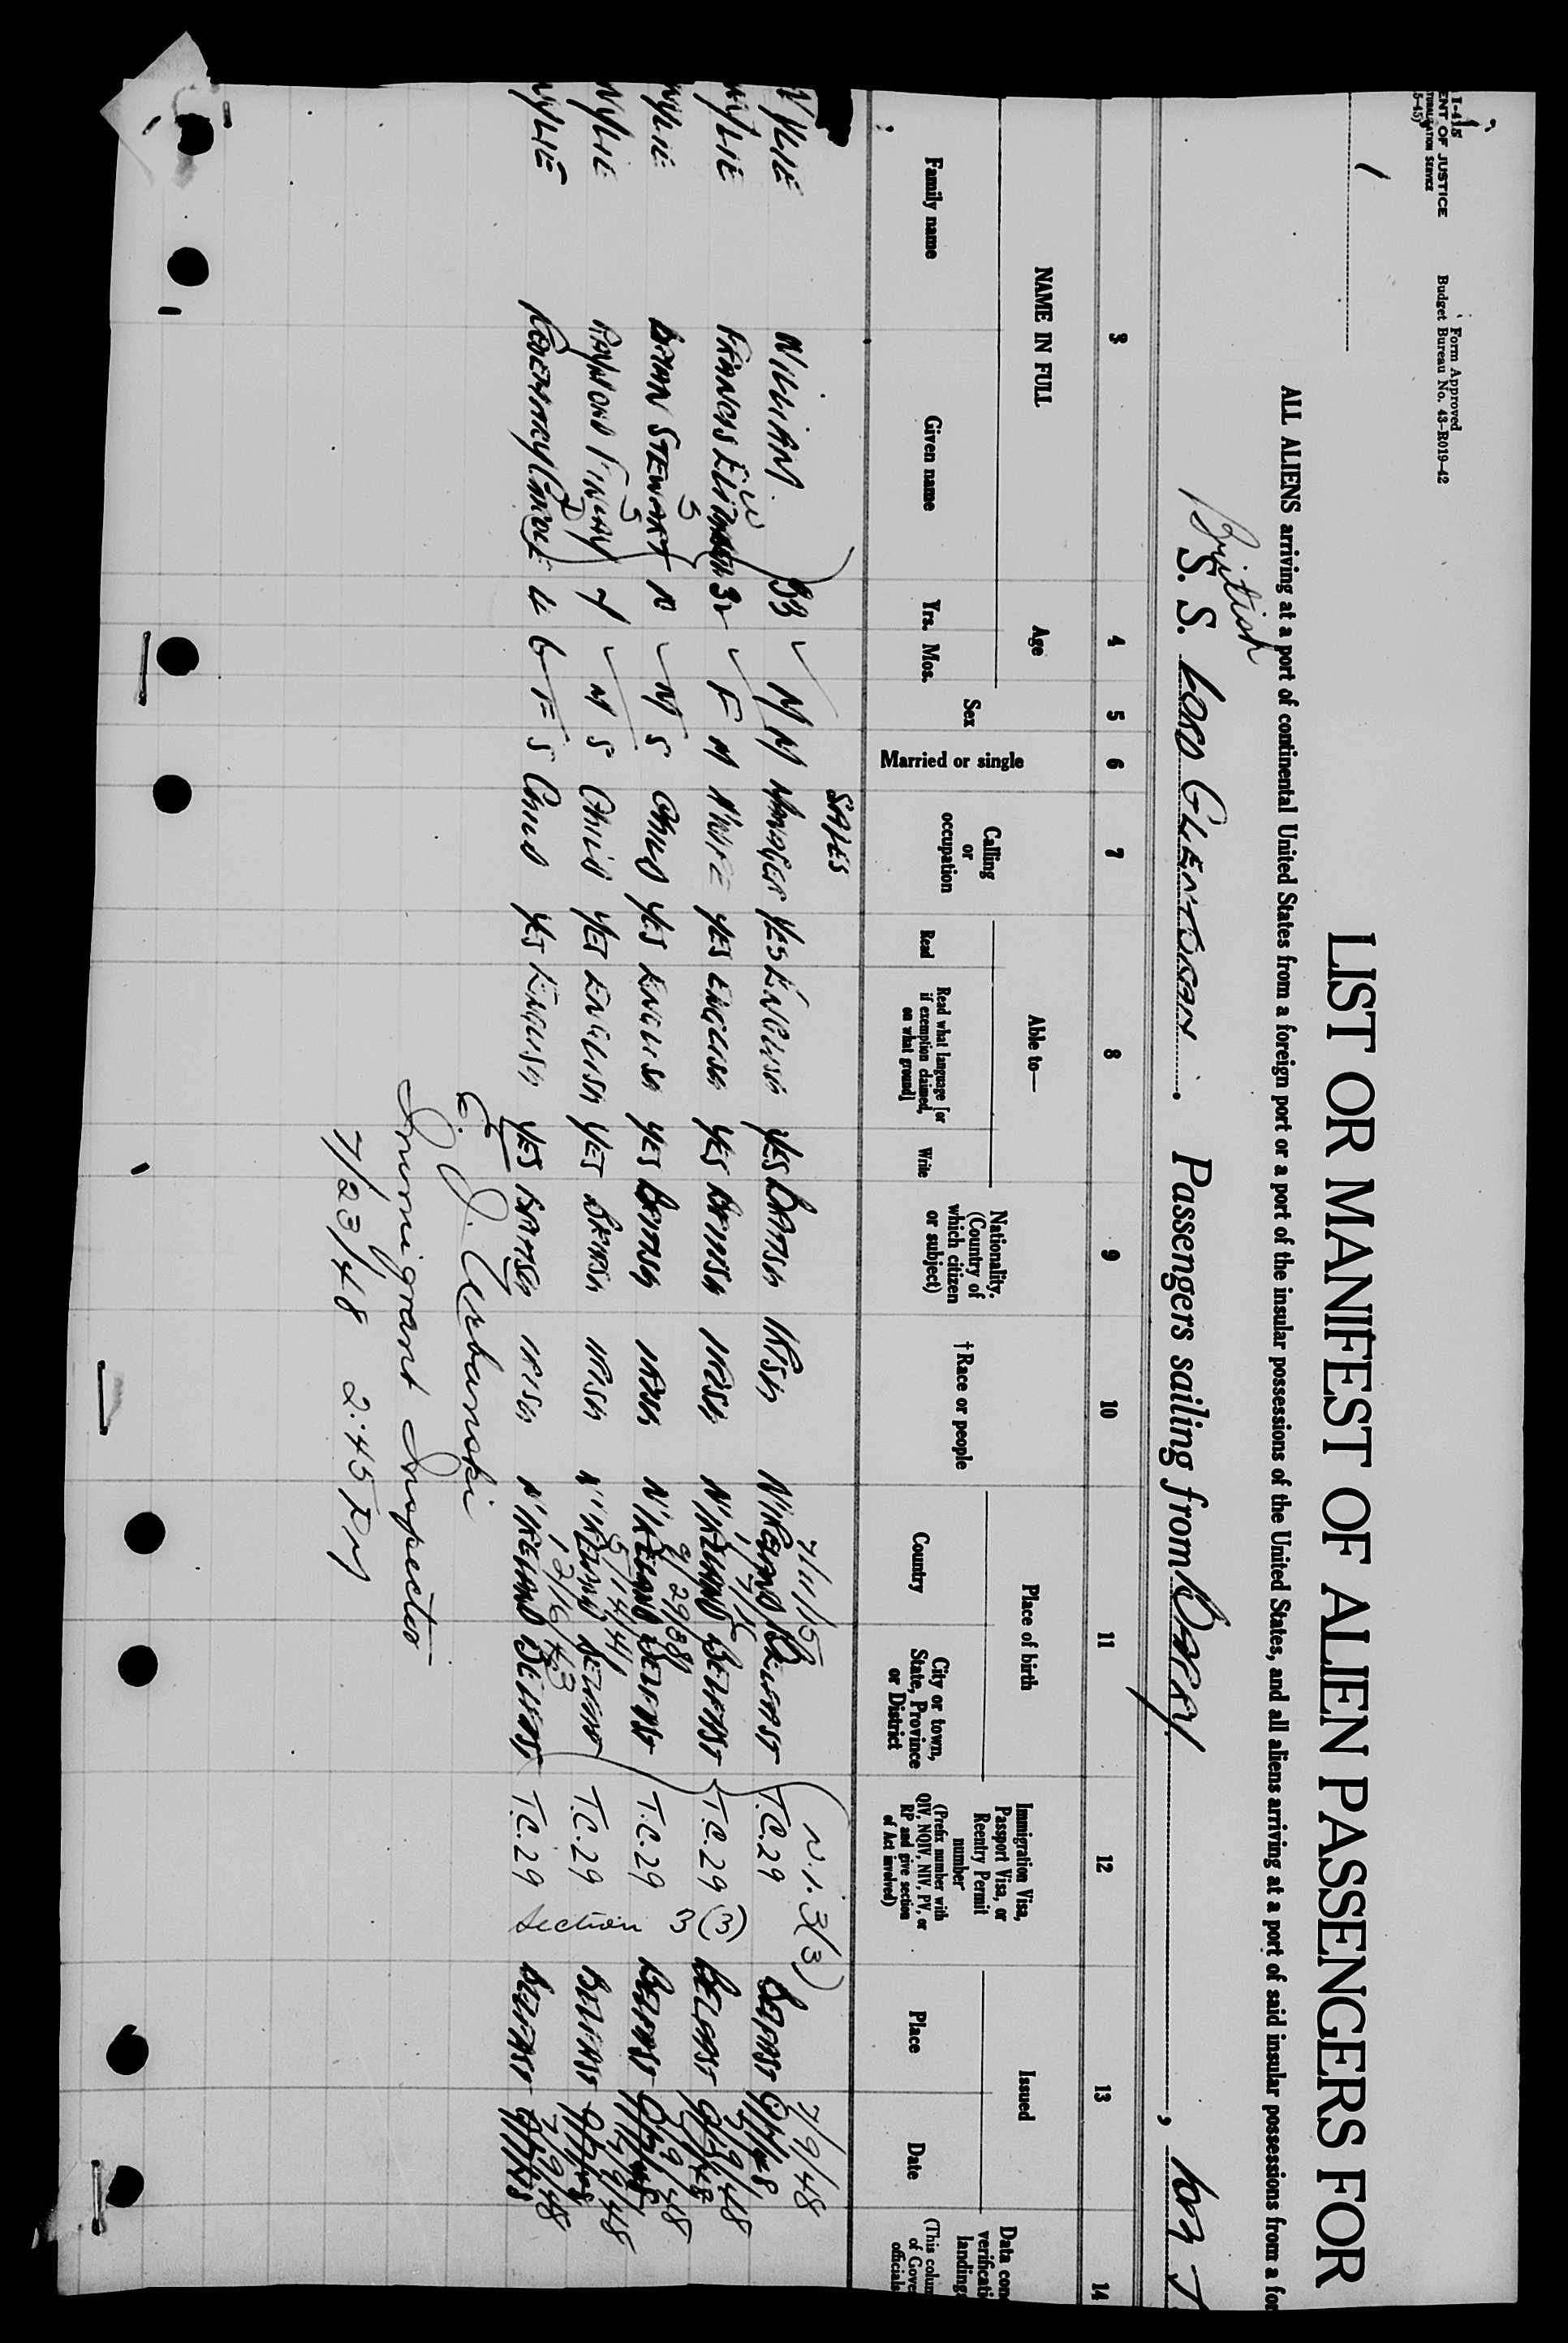 I-415
ENT OF JUSTICE
TURALIZATION SERVICE
5-45)
Form Approved
Budget Bureau No. 43-R019-42
1
LIST OR MANIFEST OF ALIEN PASSENGERS FOR
ALL ALIENS arriving at a port of continental United States from a foreign port or a port of the insular possessions of the United States, and all aliens arriving at a port of said insular possessions from a for
British
S. S. LORD GLENTORAN. Passengers sailing from BARRY,
3 4 5 6 7 8 9 10 11 12 13 14
NAME IN FULL
Family name
Given name
Age
Yrs. Mos.
Sex
Married or single
Calling
or
occupation
Able to—
Read
Read what language [or
if exemption claimed,
on what ground]
Write
Nationality.
(Country of
which citizen
or subject)
†Race or people
Place of birth
Country
City or town,
State, Province
or District
Immigration Visa,
Passport Visa, or
Reentry Permit
number
(Prefix number with
QIV, NQIV, NIV, PV, or
RP and give section
of Act involved)
Issued
Place
Date
Data con
verificati
landing,
(This colum
of Gove
officials
SALES 7/11/15 N.I. 3(3) 7/9/48
WYLIE WILLIAM 33 M M MANAGER YES ENGLISH YES BRITISH IRISH N'IRELAND BELFAST T.C. 29 BELFAST
WYLIE FRANCIS 32 F M H'WIFE YES ENGLISH YES BRITISH IRISH N'IRELAND BELFAST T.C. 29 BELFAST 7/9/48
9/29/38 Section 3(3)
WYLIE BRIAN STEWART M S CHILD YES ENGLISH YES BRITISH IRISH N'IRELAND BELFAST T.C. 29 BELFAST 7/9/48
5/14/41
WYLIE RAYMOND FINLAY 7 M S CHILD YES ENGLISH YES BRITISH IRISH N'IRELAND BELFAST T.C. 29 BELFAST 7/9/48
12/16/43
WYLIE ROSEMARY CAROLE 4 6 F S CHILD YES ENGLISH YES BRITISH IRISH N'IRELAND BELFAST T.C. 29 BELFAST 7/9/48
E. J. Urbanski
Immigrant Inspector
7/23/48 2:45 PM